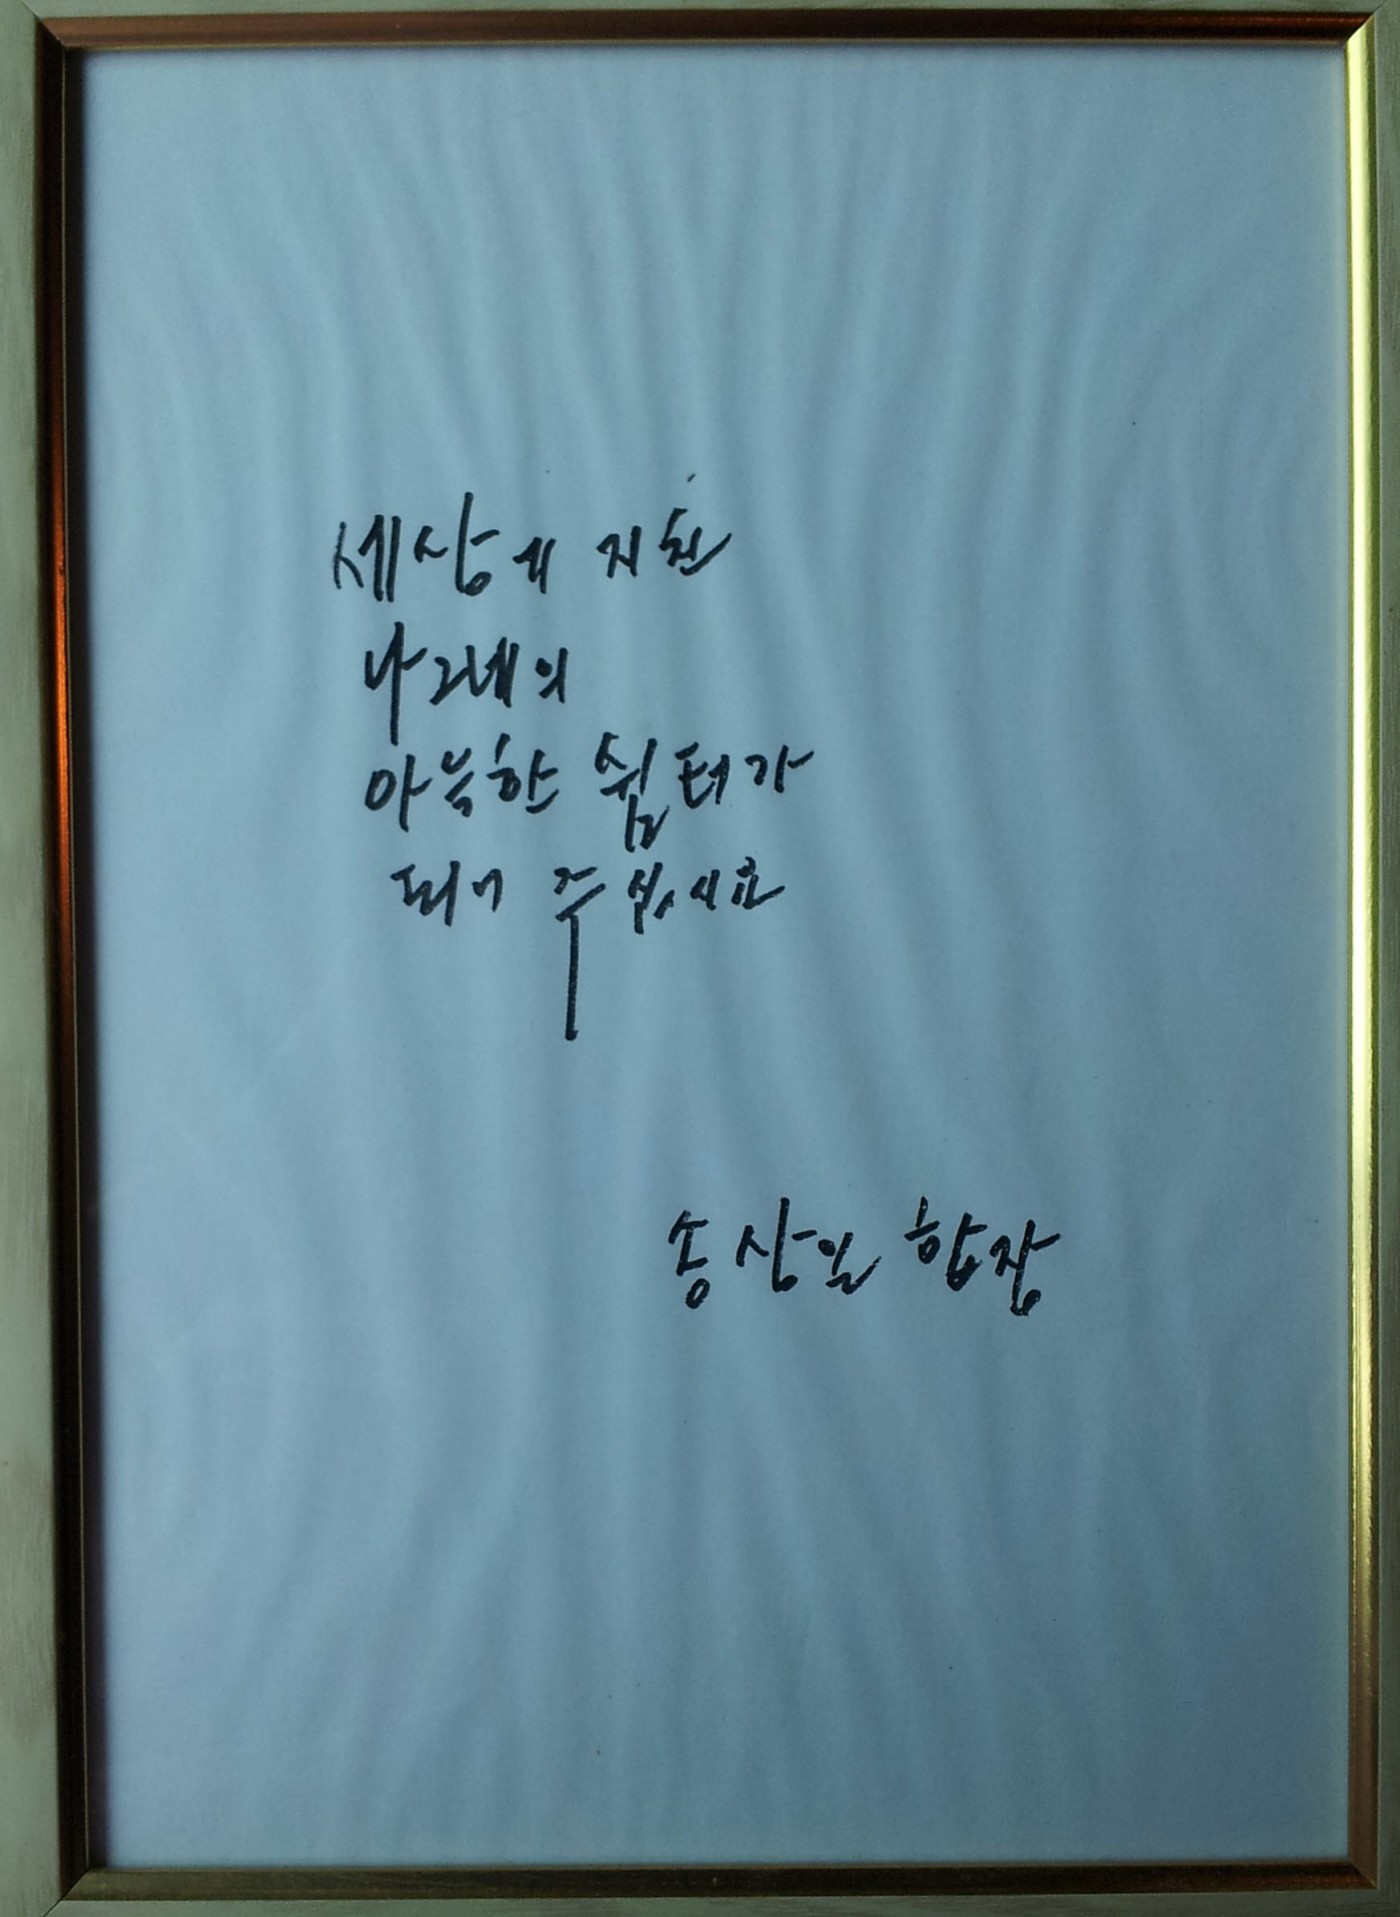 세상에 지친
나그네의
아늑한 쉼터가
되어 주십시요
송상일 합장